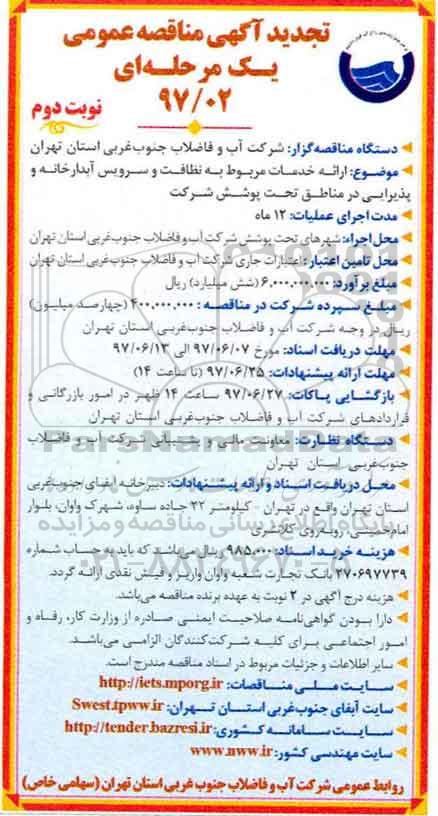 تجدید آگهی مناقصه عمومی
یک مرحله‌ای
۹۷/۰۲
نوبت دوم
دستگاه مناقصه‌گزار: شرکت آب و فاضلاب جنوب‌غربی استان تهران
موضوع: ارائه خدمات مربوط به نظافت و سرویس آبدارخانه و
پذیرایی در مناطق تحت پوشش شرکت
مدت اجرای عملیات: ۱۲ ماه
محل اجراء: شهرهای تحت پوشش شرکت آب و فاضلاب جنوب‌غربی استان تهران
محل تامین اعتبار: اعتبارات جاری شرکت آب و فاضلاب جنوب‌غربی استان تهران
مبلغ برآورد: ۶،۰۰۰،۰۰۰،۰۰۰ (شش میلیارد) ریال
مبلغ سپرده شرکت در مناقصه: ۴۰۰،۰۰۰،۰۰۰ (چهارصد میلیون)
ریال در وجه شرکت آب و فاضلاب جنوب‌غربی استان تهران
مهلت دریافت اسناد: مورخ ۹۷/۰۶/۰۷ الی ۹۷/۰۶/۱۳
مهلت ارائه پیشنهادات: ۹۷/۰۶/۲۵ (تا ساعت ۱۴)
بازگشایی پاکات: ۹۷/۰۶/۲۷ ساعت ۱۴ ظهر در امور بازرگانی و
قراردادهای شرکت آب و فاضلاب جنوب‌غربی استان تهران
دستگاه نظارت: معاونت مالی و پشتیبانی شرکت آب و فاضلاب
جنوب‌غربی استان تهران
محل دریافت اسناد و ارائه پیشنهادات: دبیرخانه آبفای جنوب‌غربی
استان تهران واقع در تهران - کیلومتر ۲۲ جاده ساوه، شهرک واوان، بلوار
امام‌خمینی، روبه‌روی کلانتری
هزینه خرید اسناد: ۹۸۵،۰۰۰ ریال می‌باشد که باید به حساب شماره
۲۷۰۶۹۷۷۳۹ بانک تجارت شعبه واوان واریز و فیش نقدی ارائه گردد.
هزینه درج آگهی در ۲ نوبت به عهده برنده مناقصه می‌باشد.
دارا بودن گواهی‌نامه صلاحیت ایمنی صادره از وزارت کار، رفاه و
امور اجتماعی برای کلیه شرکت‌کنندگان الزامی می‌باشد.
سایر اطلاعات و جزئیات مربوط در اسناد مناقصه مندرج است.
سایت ملی مناقصات: http://iets.mporg.ir
سایت آبفای جنوب‌غربی استان تهران: Swest.tpww.ir
سایت سامانه کشوری: http://tender.bazresi.ir
سایت مهندسی کشور: www.nww.ir
روابط عمومی شرکت آب و فاضلاب جنوب غربی استان تهران (سهامی خاص)
ParsNamadData
پایگاه اطلاع رسانی مناقصه و مزایده